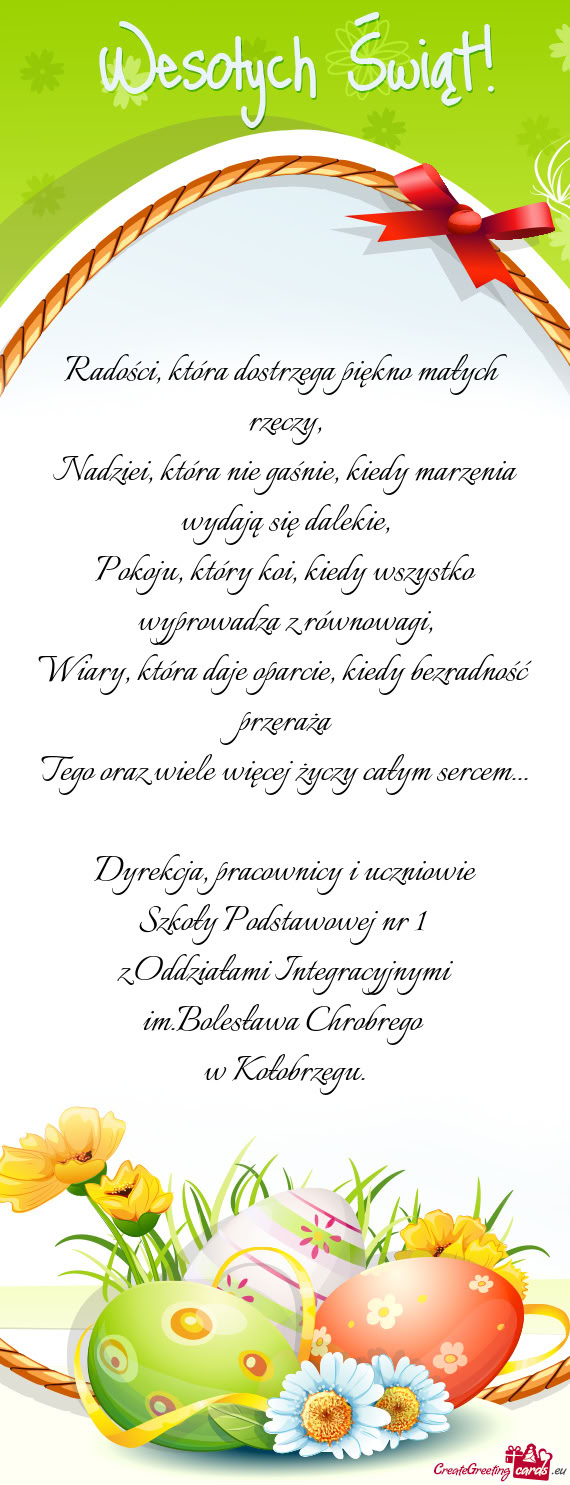 Wesołych Świąt!
Radości, która dostrzega piękno małych
rzeczy,
Nadziei, która nie gaśnie, kiedy marzenia
wydają się dalekie,
Pokoju, który koi, kiedy wszystko
wyprowadza z równowagi,
Wiary, która daje oparcie, kiedy bezradność
przeraża
Tego oraz wiele więcej życzy całym sercem...
Dyrekcja, pracownicy i uczniowie
Szkoły Podstawowej nr 1
z Oddziałami Integracyjnymi
im.Bolesława Chrobrego
w Kołobrzegu.
CreateGreeting cards .eu